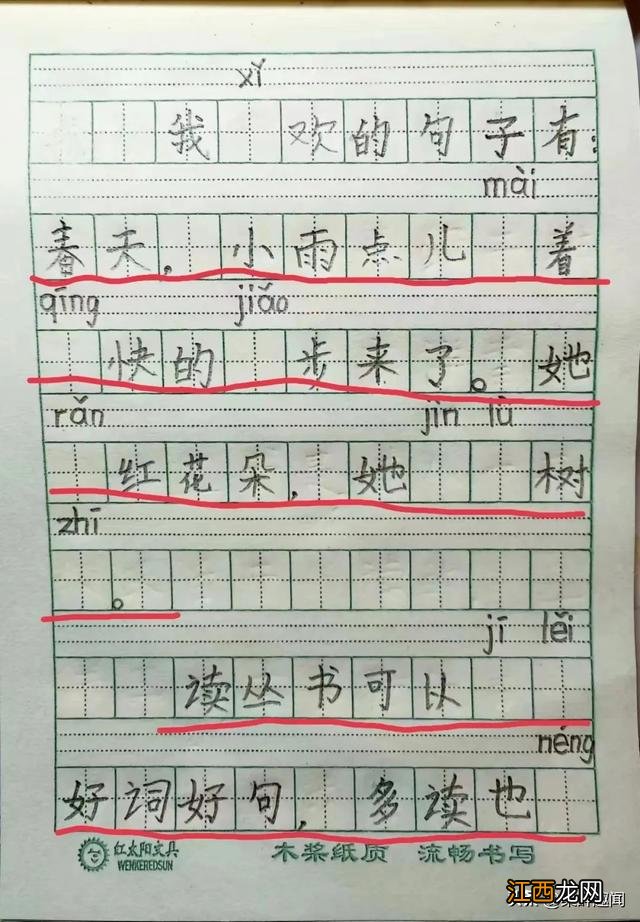 xǐ
我 欢的句子有：
mài
春天，小雨点儿 着
qīng jiǎo
快的 步来了。她
rǎn jìn lǜ
红花朵，她 树
zhī
。
jī lěi
读丛书可以
néng
好词好句，多读也
红太阳文具
WENKEREDSUN
木浆纸质 流畅书写
江西龙网